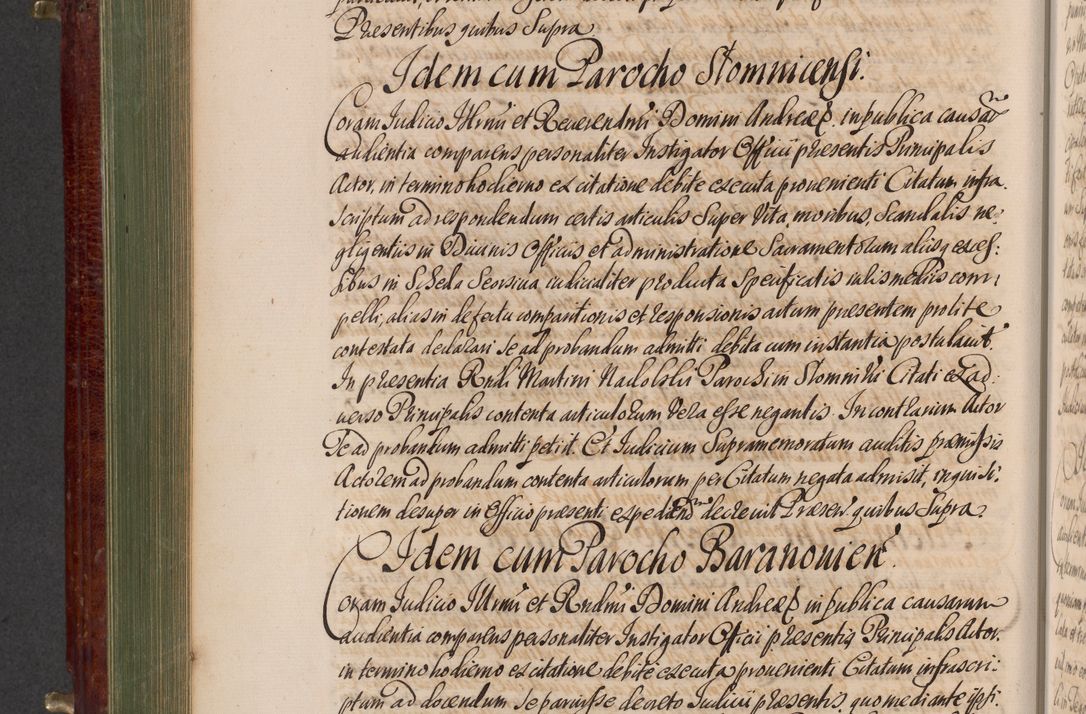 Praesentibus quibus Supra
Idem cum Parocho Slomnicensi.
Coram Iudicio Illrmi et Reuerendmi Domini Andreae E. in publica causar
audientia comparens personaliter Instigator Officii praesentis Principalis
Actor, in termino hodierno ex citatione debite executa prouenienti Citatum infra
scriptum ad respondendum certis articulis Super Vita, moribus, Scandalis ne,
gligentiis in Diuinis Officiis et administratione Sacramentorum aliisq exces:
sibus in Schela Seorsiua iudicialiter producta Specificatis iuris mediis com,
pelli, alias in defectu comparitionis et responsionis actum praesentem pro lite
contestata declarari Se ad probandum admitti debita cum instantia postulauit.
In praesentia Rndi Martini Nadolski Parochi in Slomniki Citati ex ad,
uerso Principalis contenta articulorum Vera esse negantis. In contrarium Actor
Se ad probandum admitti petiit. Et Iudicium Supramemoratum auditis praemissis
Actorem ad probandum contenta articulorum per Citatum negata admisit, inquisi,
tionem desuper in Officio praesenti expediend decreuit Praesen. quibus Supra.
Idem cum Parocho Baranouien.
Coram Iudicio Illrmi et Rndmi Domini Andreae E in publica causarum
audientia comparens personaliter Instigator Officii praesentis Principalis Actor,
in termino hodierno ex citatione debite executa prouenienti Citatum infrascri:
ptum ad docendum Se paruisse decreto Iudicii praesentis, quo mediante ipsi